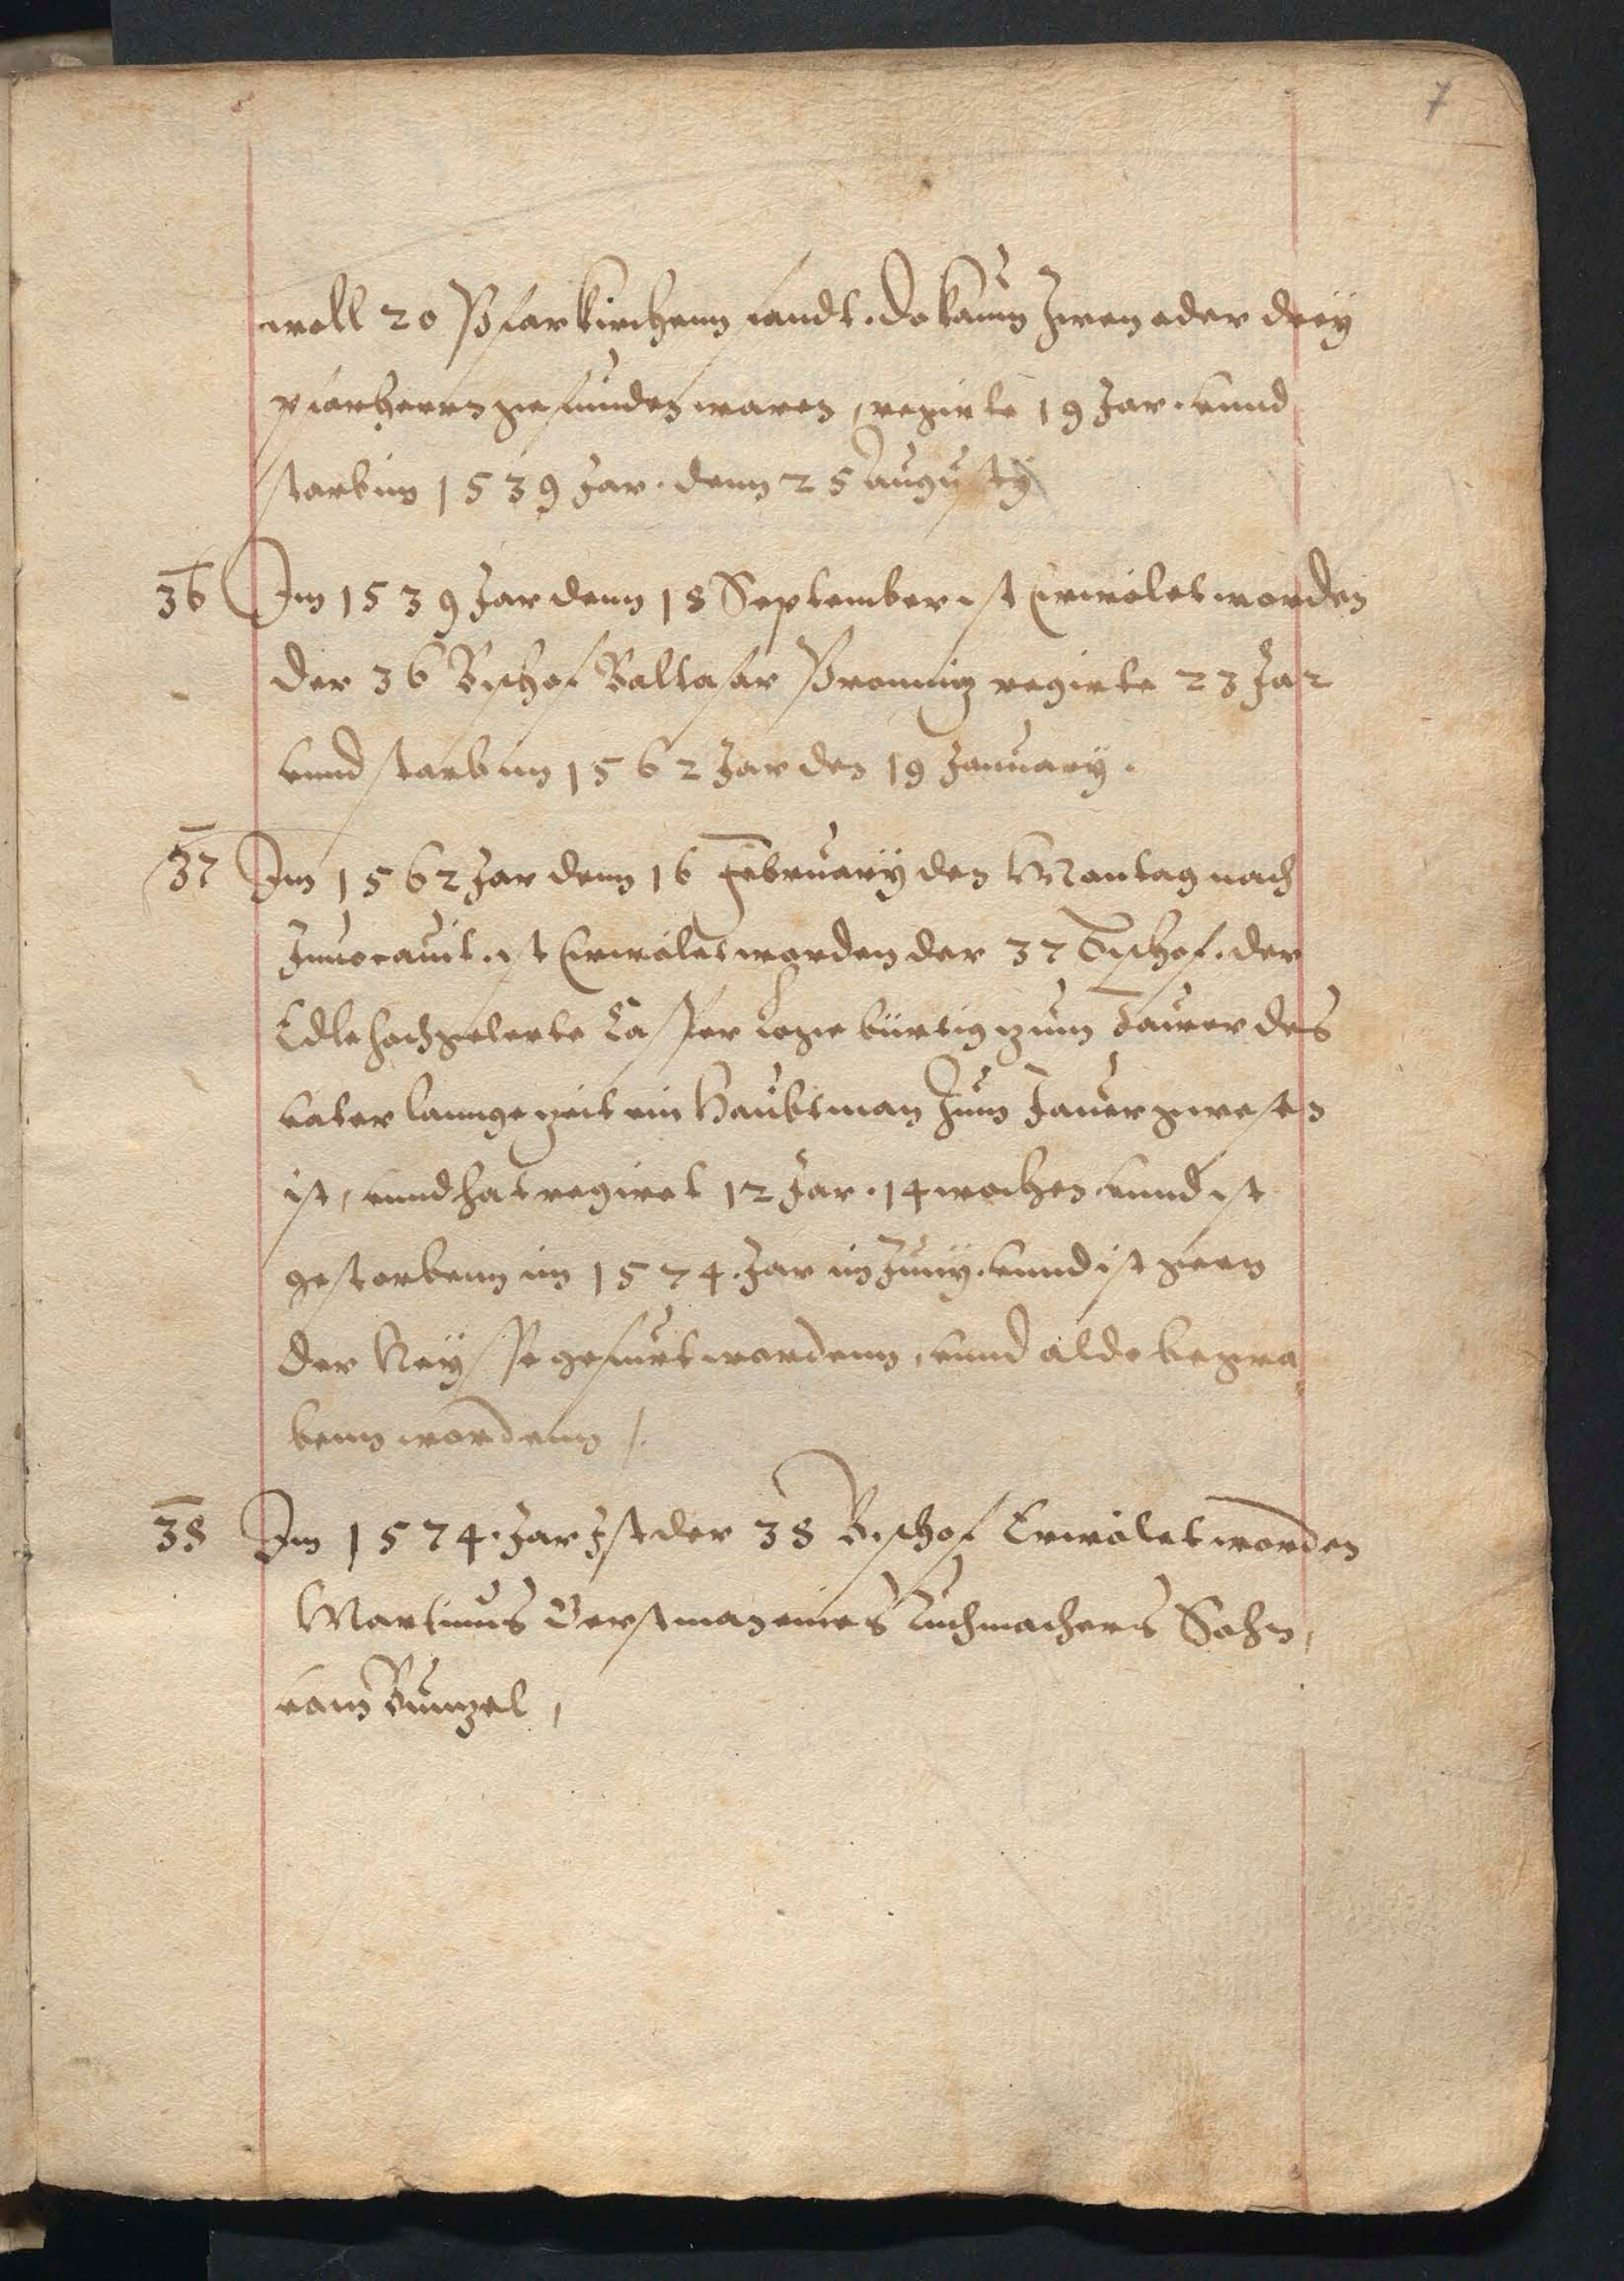 7
woll 20 Pfarkirchenn fandt. do kaum zwen oder dreÿ
pfarherrn zie finden waren, regirte 19 Jar. vnnd
starb im 1539 Jar. denn 25 Augustÿ
36 Im 1539 Jar denn 18 September ist Erwölet worden
der 36 Bischof Baltasar Promnig regirte 23 Jar
vnnd starb im 1562 Jar den 19 Januarÿ.
37 Im 1562 Jar denn 16 Februarÿ den Montag nach
Inuocauit. ist Erwölet worden der 37 Bischof. der
Edle hochgelerte Casper loge bürtig zum Jaurer des
vater lannge zeit ein Haubtman zum Jauer gewesen
ist, vnnd hat regiret 12 Jar. 14 wochen vnnd ist
gestorbenn im 1574. Jar im Junÿ. vnnd ist gen
der Neÿsse gefurt wordenn, vnnd aldo begra
benn wordenn /.
38 Im 1574. Jar Ist der 38 Bischof Erwölet worden
Martinus Gerstman eines Tuchmachers Sohn,
vom Bunzel,